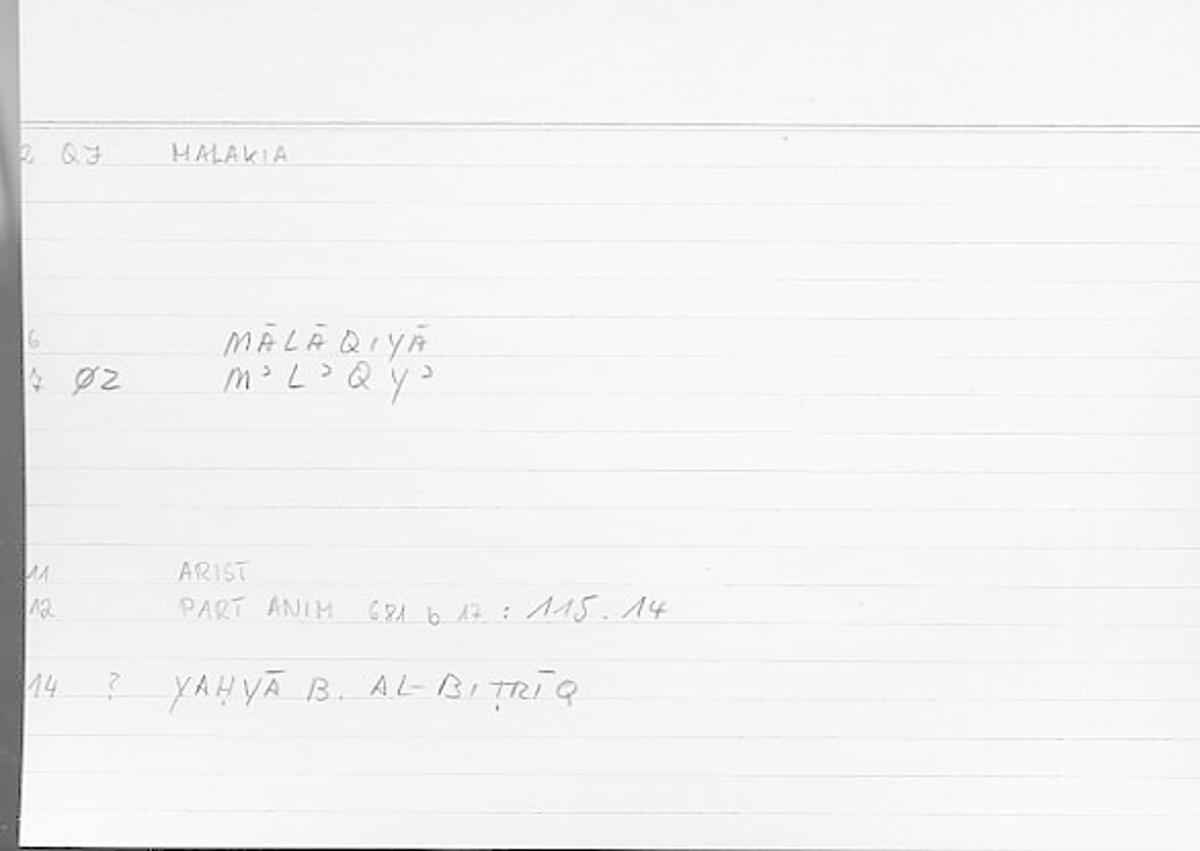 2 QJ MALAKIA
6 MĀLĀQIYĀ
7 ØZ MʾLʾQYʾ
11 ARIST
12 PART ANIM 681 b 17 : 115.14
14 ? YAḤYĀ B. AL-BIṬRĪQ